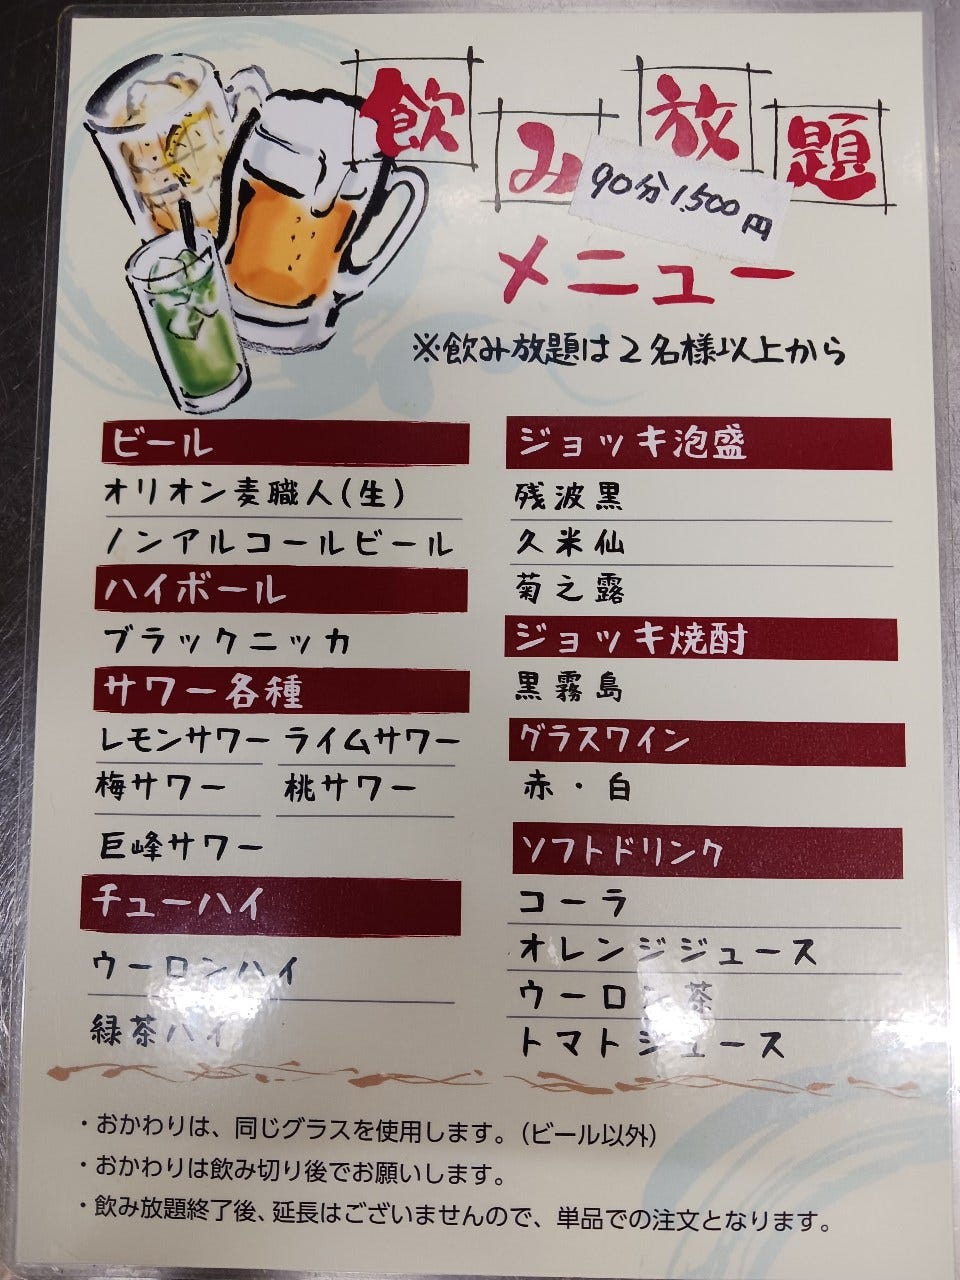 飲み放題
90分1,500円
メニュー
※飲み放題は2名様以上から
ビール
オリオン麦職人(生)
ノンアルコールビール
ハイボール
ブラックニッカ
サワー各種
レモンサワー ライムサワー
梅サワー 桃サワー
巨峰サワー
チューハイ
ウーロンハイ
緑茶ハイ
ジョッキ泡盛
残波黒
久米仙
菊之露
ジョッキ焼酎
黒霧島
グラスワイン
赤・白
ソフトドリンク
コーラ
オレンジジュース
ウーロン茶
トマトジュース
・おかわりは、同じグラスを使用します。(ビール以外)
・おかわりは飲み切り後でお願いします。
・飲み放題終了後、延長はございませんので、単品での注文となります。